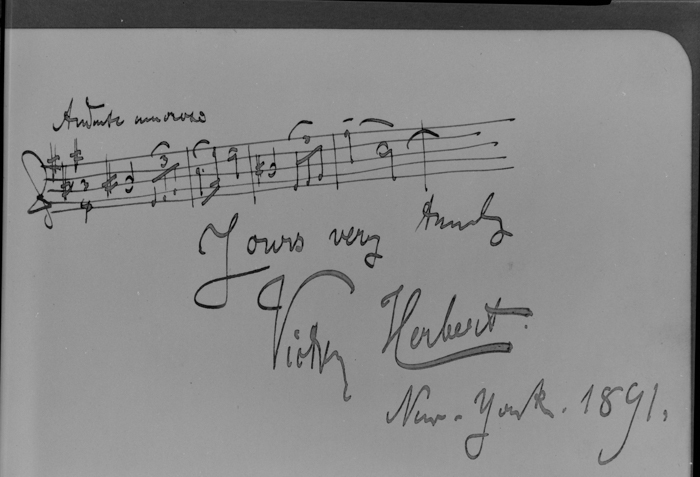 Andante amoroso
3 3
Yours very truly
Victor Herbert.
New-York. 1891.